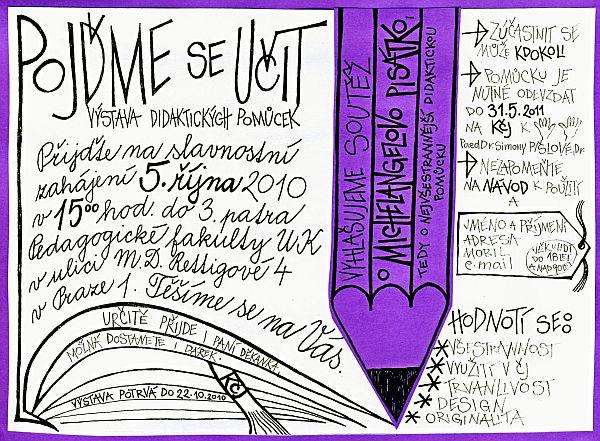 POJĎME SE UČIT
VÝSTAVA DIDAKTICKÝCH POMŮCEK
Přijďte na slavnostní
zahájení 5. října 2010
v 15⁰⁰ hod. do 3. patra
Pedagogické fakulty UK
v ulici M. D. Rettigové 4
v Praze 1. Těšíme se na Vás.
URČITĚ PŘIJDE I PANÍ DĚKANKA.
MOŽNÁ DOSTANETE I DÁREK.
VÝSTAVA POTRVÁ DO 22.10.2010
VYHLAŠUJEME SOUTĚŽ
O MICHELANGELOVO PISÁTKO,
TEDY O NEJVŠESTRANNĚJŠÍ DIDAKTICKOU
POMŮCKU
ZÚČASTNIT SE
MŮŽE KDOKOLI
POMŮCKU JE
NUTNÉ ODEVZDAT
DO 31.5.2011
NA K
PaedDr. Simony PIŠLOVÉ, Dr.
NEZAPOMEŇTE
NA NÁVOD K POUŽITÍ
A
JMÉNO A PŘÍJMENÍ
ADRESA
MOBIL
e-mail
VĚK: LIDI
DO 18 LET
A NAD 90
HODNOTÍ SE:
VŠESTRANNOST
VYUŽITÍ V ČJ
TRVANLIVOST
DESIGN
ORIGINALITA